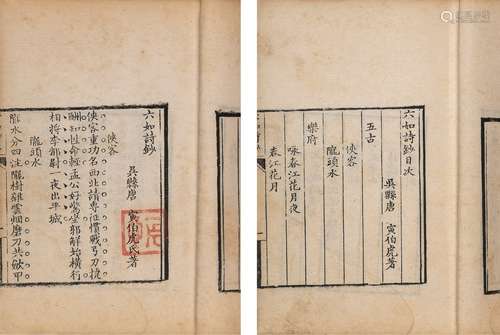 六如詩鈔目次
吳縣唐 寅伯虎著
五古
俠客
隴頭水
樂府
咏春江花月夜
春江花月
六如詩鈔
吳縣唐 寅伯虎氏著
俠客
俠客重功名西北請專征慣戰弓刀捷
酬知性命輕孟公好驚坐郭解始橫行
相將李都尉一夜出平城
隴頭水
隴水分四注隴樹雜雲烟磨刀共斂甲